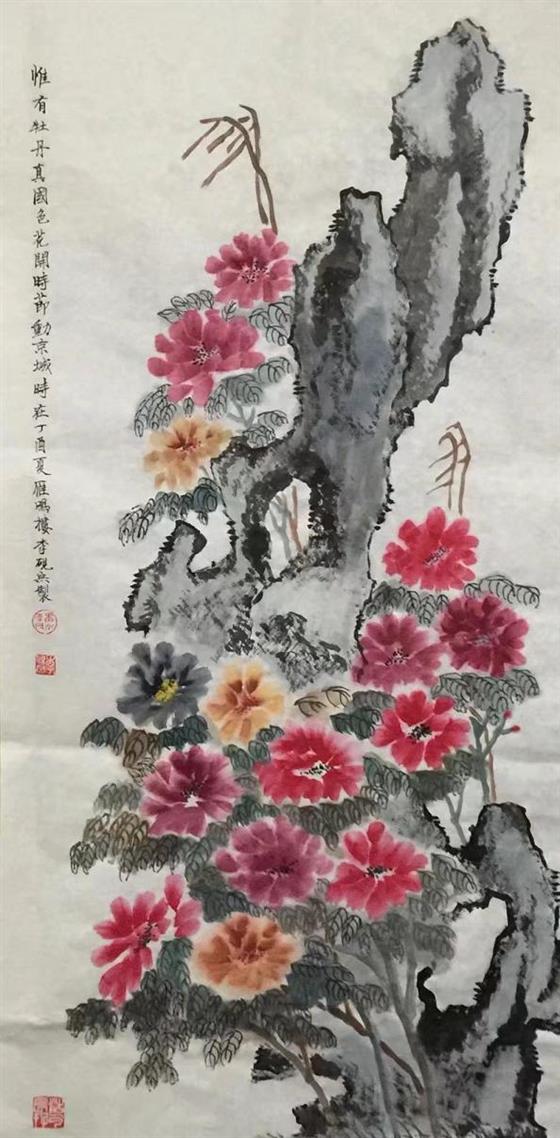 惟有牡丹真國色花開時節動京城時在丁酉夏雁鳴樓李硯兵製